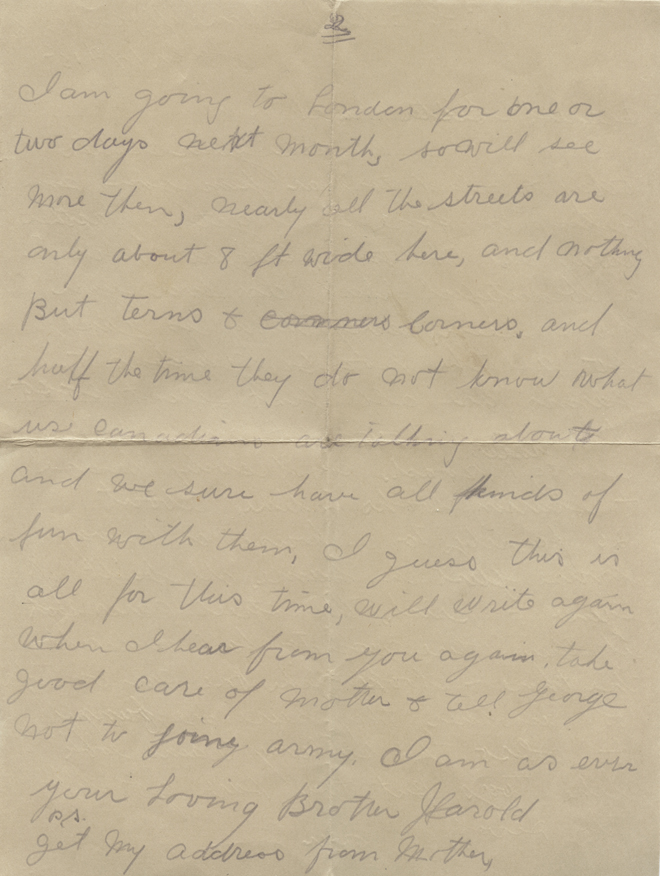 2
I am going to London for one or
two days next month, so will see
more then, nearly all the streets are
only about 8 ft wide here, and nothing
But terns & corners, and
half the time they do not know what
us canadians are talking about
and we sure have all kinds of
fun with them, I guess this is
all for this time, will write again
when I hear from you again, take
good care of Mother & tell George
not to joing army. I am as ever
your Loving Brother Harold
P.S.
get My address from Mother,